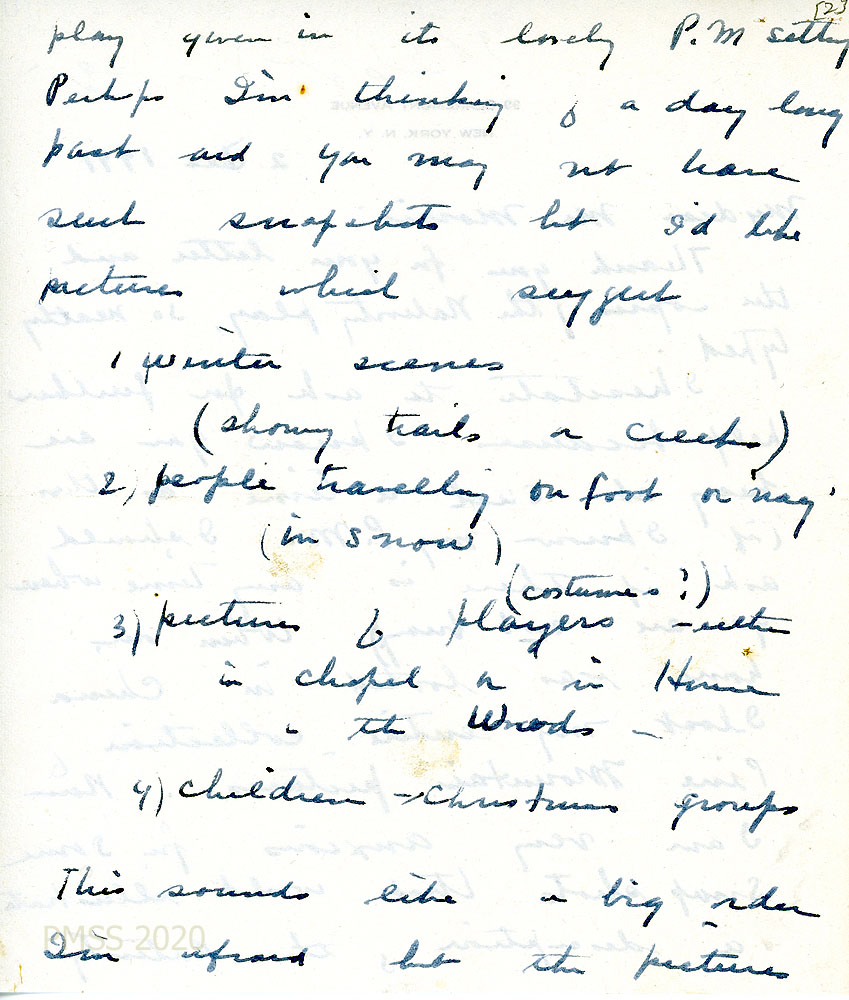 [2]
play given in its lovely P.M setting
Perhaps I'm thinking of a day long
past and you may not have
such snapshots but I'd like
pictures which suggest
1 winter scenes
(showing trails or creeks)
2) people travelling on foot or 'nag'
(in snow)
(costumes?)
3) pictures of players – either
in chapel or in House
in the Woods –
4) children – Christmas groups
This sounds like a big order
I'm afraid but the pictures
PMSS 2020